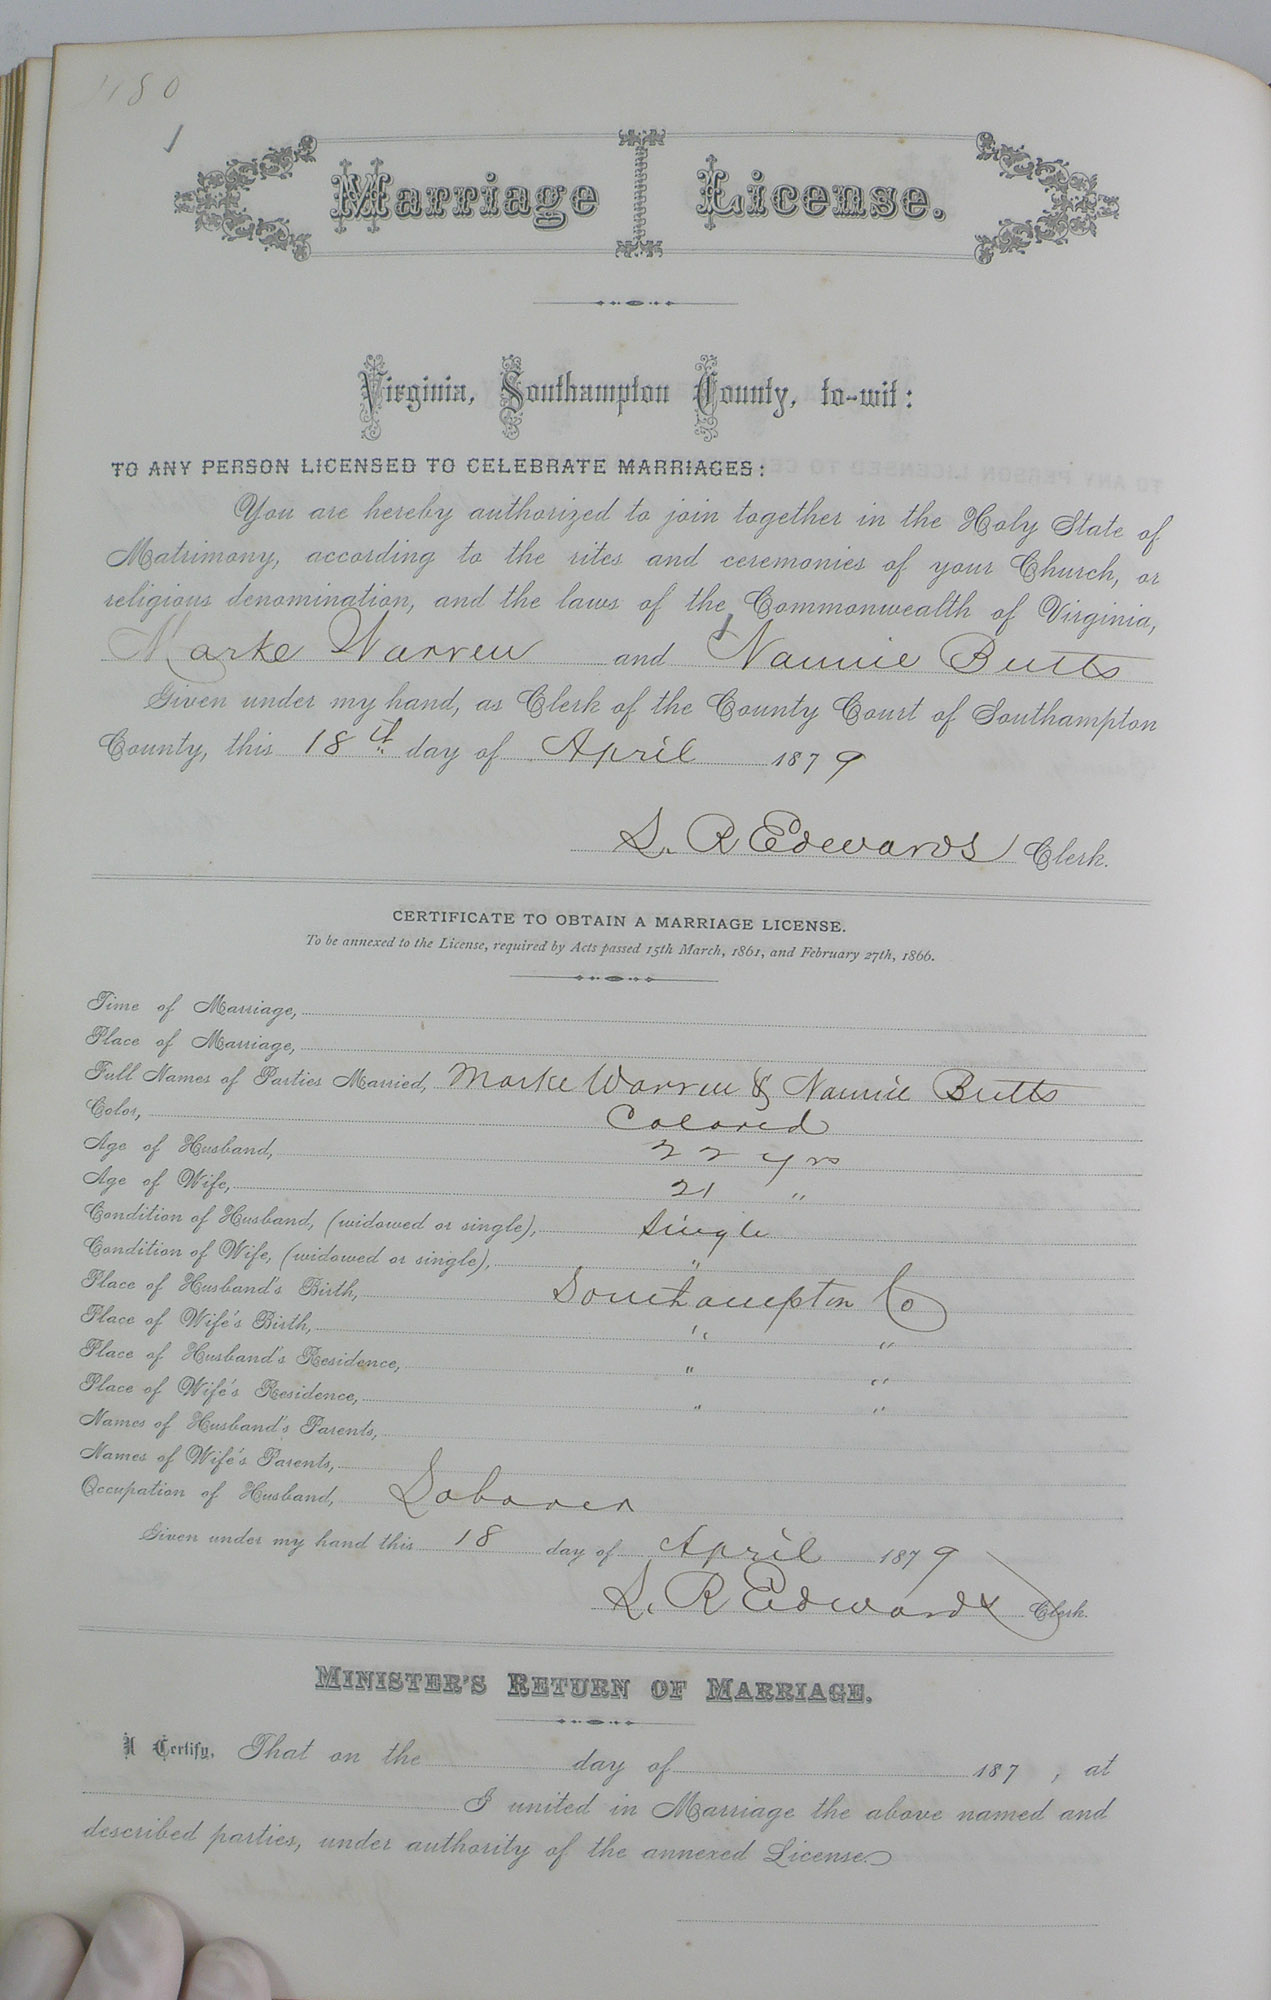 180
Marriage License.
Virginia, Southampton County, to-wit:
TO ANY PERSON LICENSED TO CELEBRATE MARRIAGES:
You are hereby authorized to join together in the Holy State of
Matrimony, according to the rites and ceremonies of your Church, or
religious denomination, and the laws of the Commonwealth of Virginia,
Marke Warren and Nannie Butts
Given under my hand, as Clerk of the County Court of Southampton
County, this 18th day of April 1879
L. R Edwards Clerk.
CERTIFICATE TO OBTAIN A MARRIAGE LICENSE.
To be annexed to the License, required by Acts passed 15th March, 1861, and February 27th, 1866.
Time of Marriage,
Place of Marriage,
Full Names of Parties Married, Marke Warren & Nannie Butts
Color, Colored
Age of Husband, 22 yrs
Age of Wife, 21 "
Condition of Husband, (widowed or single), Single
Condition of Wife, (widowed or single), "
Place of Husband's Birth, Southampton Co
Place of Wife's Birth, " "
Place of Husband's Residence, " "
Place of Wife's Residence, " "
Names of Husband's Parents,
Names of Wife's Parents,
Occupation of Husband, Laborer
Given under my hand this 18 day of April 1879
L. R Edwards Clerk.
MINISTER'S RETURN OF MARRIAGE.
I Certify, That on the day of 187 , at
I united in Marriage the above named and
described parties, under authority of the annexed License.